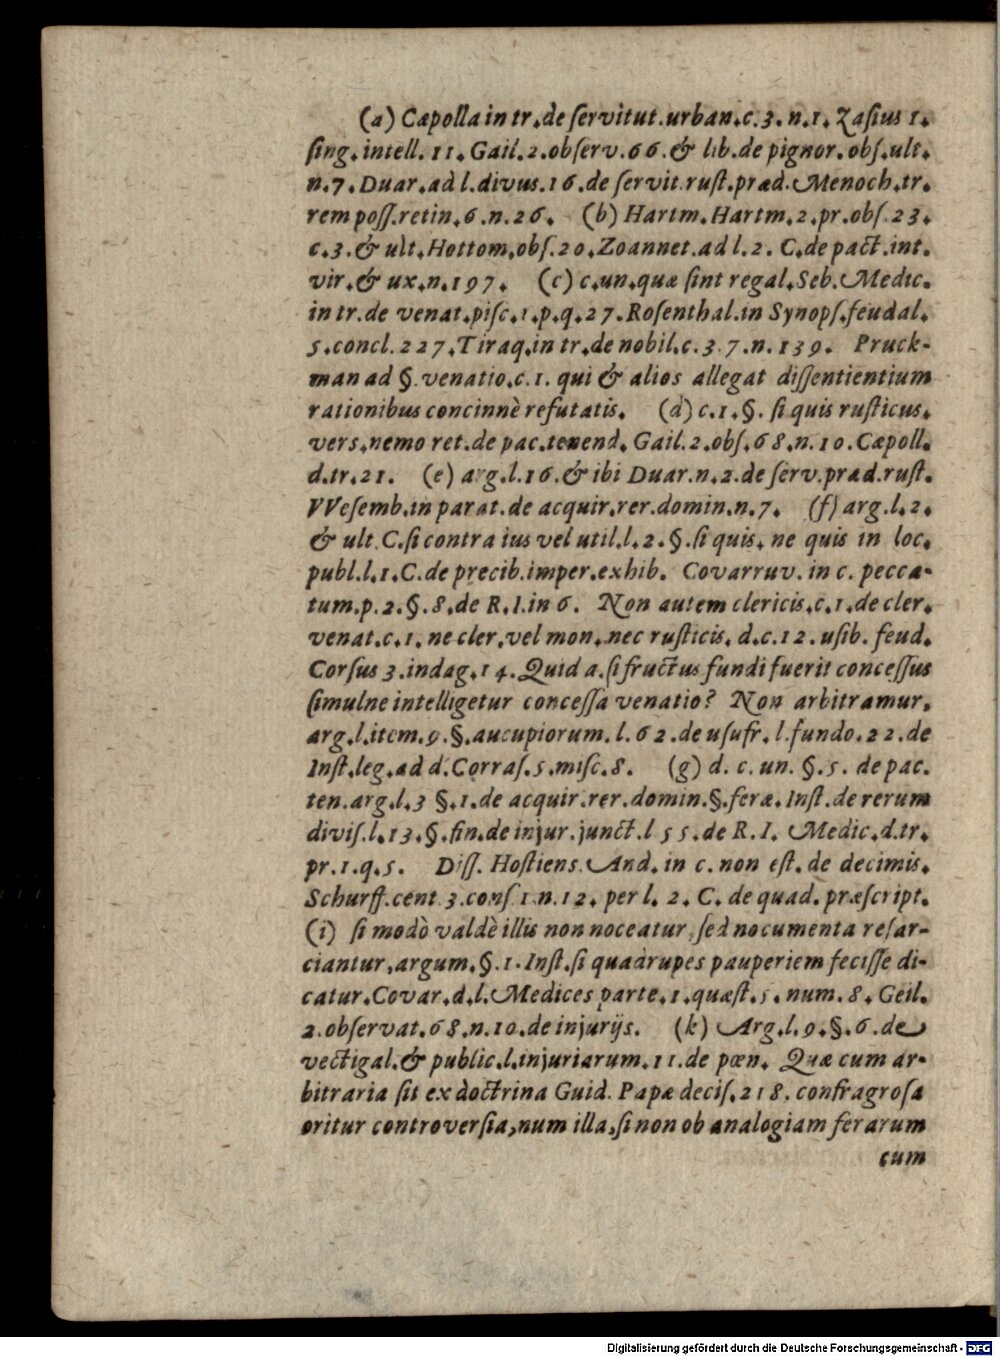 (a) Cæpolla in tr. de ſervitut. urban. c. 3. n. 1. Zaſius 1.
ſing. intell. 11. Gail. 2. obſerv. 66. & lib. de pignor. obſ. ult.
n. 7. Duar. ad l. divus. 16. de ſervit. ruſt. præd. Menoch. tr.
rem poſſ. retin. 6. n. 26. (b) Hartm. Hartm. 2. pr. obſ. 23.
c. 3. & ult. Hottom. obſ. 20. Zoannet. ad l. 2. C. de pact. int.
vir. & ux. n. 197. (c) c. un. quæ ſint regal. Seb. Medic.
in tr. de venat. piſc. 1. p. q. 27. Roſenthal. in Synopſ. feudal.
5. concl. 227. Tiraq. in tr. de nobil. c. 3 7. n. 139. Pruck-
man ad §. venatio. c. 1. qui & alios allegat diſſentientium
rationibus concinnè refutatis. (d) c. 1. §. ſi quis ruſticus.
verſ. nemo ret. de pac. tenend. Gail. 2. obſ. 68. n. 10. Cæpoll.
d. tr. 21. (e) arg. l. 16. & ibi Duar. n. 2. de ſerv. præd. ruſt.
VVeſemb. in parat. de acquir. rer. domin. n. 7. (f) arg. l. 2.
& ult. C. ſi contra ius vel util. l. 2. §. ſi quis. ne quis in loc.
publ. l. 1. C. de precib. imper. exhib. Covarruv. in c. pecca-
tum. p. 2. §. 8. de R. I. in 6. Non autem clericis. c. 1. de cler.
venat. c. 1. ne cler. vel mon. nec ruſticis. d. c. 12. uſib. feud.
Corſus 3. indag. 14. Quid a. ſi fructus fundi fuerit conceſſus
ſimulne intelligetur conceſſa venatio? Non arbitramur,
arg. l. item. 9. §. aucupiorum. l. 62. de uſufr. l. fundo. 22. de
Inſt. leg. ad d. Corraſ. 5. miſc. 8. (g) d. c. un. §. 5. de pac.
ten. arg. l. 3 §. 1. de acquir. rer. domin. §. feræ. Inſt. de rerum
diviſ. l. 13. §. fin. de injur. junct. l 55. de R. I. Medic. d. tr.
pr. 1. q. 5. Diſſ. Hoſtiens. And. in c. non eſt. de decimis.
Schurff. cent. 3. conſ 1. n. 12. per l. 2. C. de quad. præſcript.
(i) ſi modò valdè illis non noceatur, ſed nocumenta reſar-
ciantur, argum. §. 1. Inſt. ſi quadrupes pauperiem feciſſe di-
catur. Covar. d. l. Medices parte. 1. quæſt. 5. num. 8. Geil.
2. obſervat. 68. n. 10. de injurijs. (k) Arg. l. 9. §. 6. de
vectigal. & public. l. injuriarum. 11. de pœn. Quæ cum ar-
bitraria ſit ex doctrina Guid. Papæ deciſ. 218. confragroſa
oritur controverſia, num illa, ſi non ob analogiam ferarum
cum
Digitalisierung gefördert durch die Deutsche Forschungsgemeinschaft - DFG